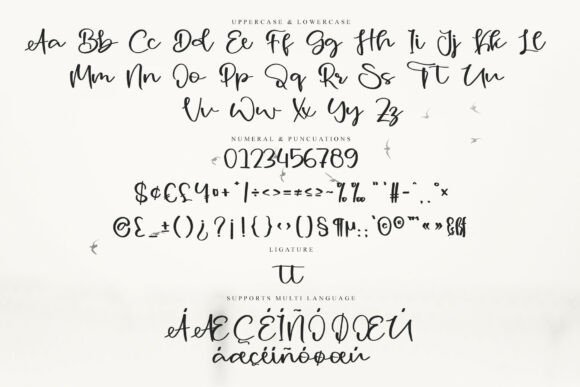 UPPERCASE & LOWERCASE
Aa Bb Cc Dd Ee Ff Gg Hh Ii Jj Kk Ll
Mm Nn Oo Pp Qq Rr Ss Tt Uu
Vv Ww Xx Yy Zz
NUMERAL & PUNCUATIONS
0123456789
$¢€£¥¤+*/÷<>=≠≤≥~%‰"'#-^.,°×
@£_±()¿?¡!{}‹›[]§¶µ:;'©®™"«»
LIGATURE
tt
SUPPORTS MULTI LANGUAGE
ÁÆÇÉÍÑÓØŒÚ
áæçéíñóøœú